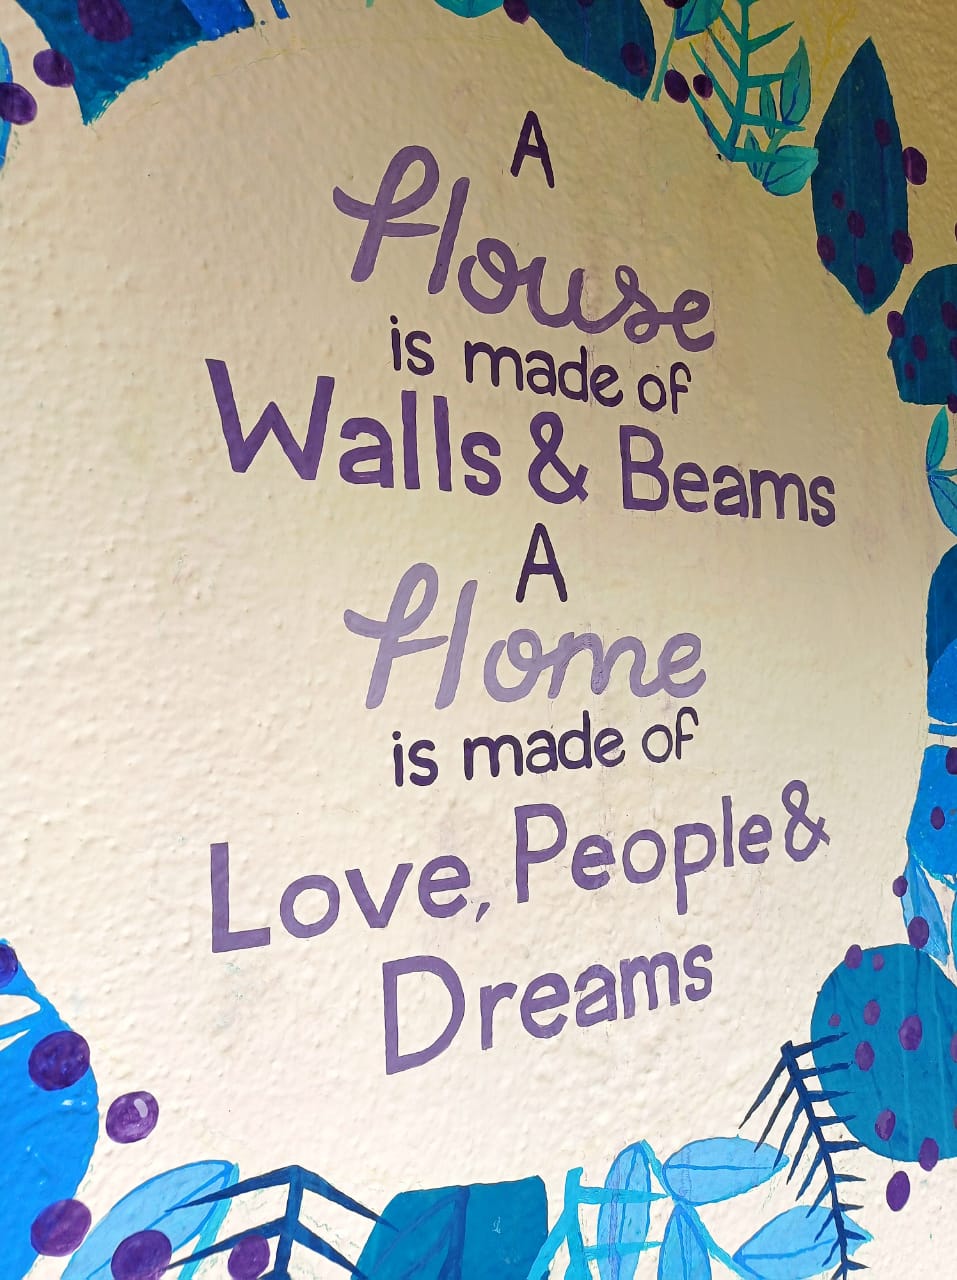 A
House
is made of
Walls & Beams
A
Home
is made of
Love, People &
Dreams